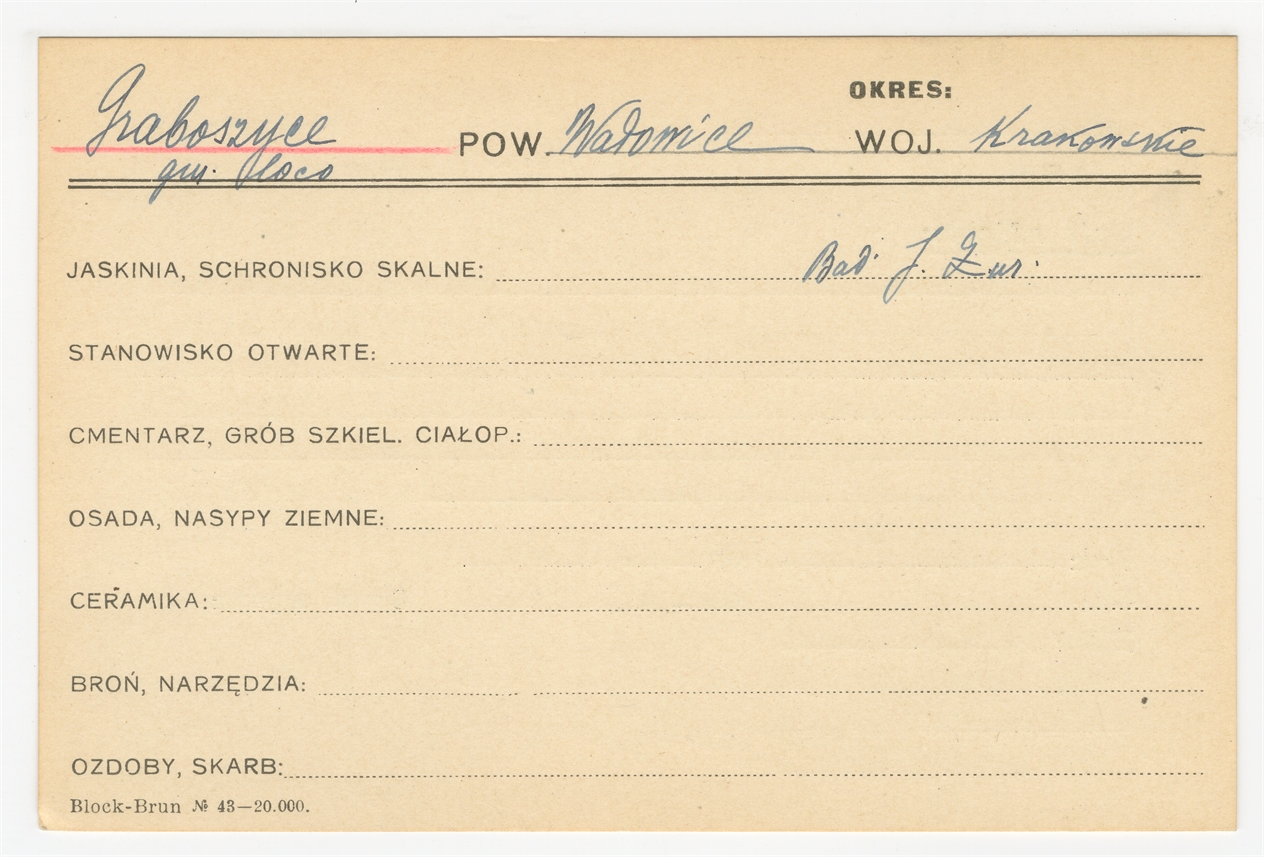 OKRES:
Graboszyce POW. Wadowice WOJ. Krakowskie
gm. loco
JASKINIA, SCHRONISKO SKALNE: Bad. J. Żur.
STANOWISKO OTWARTE:
CMENTARZ, GRÓB SZKIEL. CIAŁOP.:
OSADA, NASYPY ZIEMNE:
CERAMIKA:
BROŃ, NARZĘDZIA:
OZDOBY, SKARB:
Block-Brun № 43—20.000.